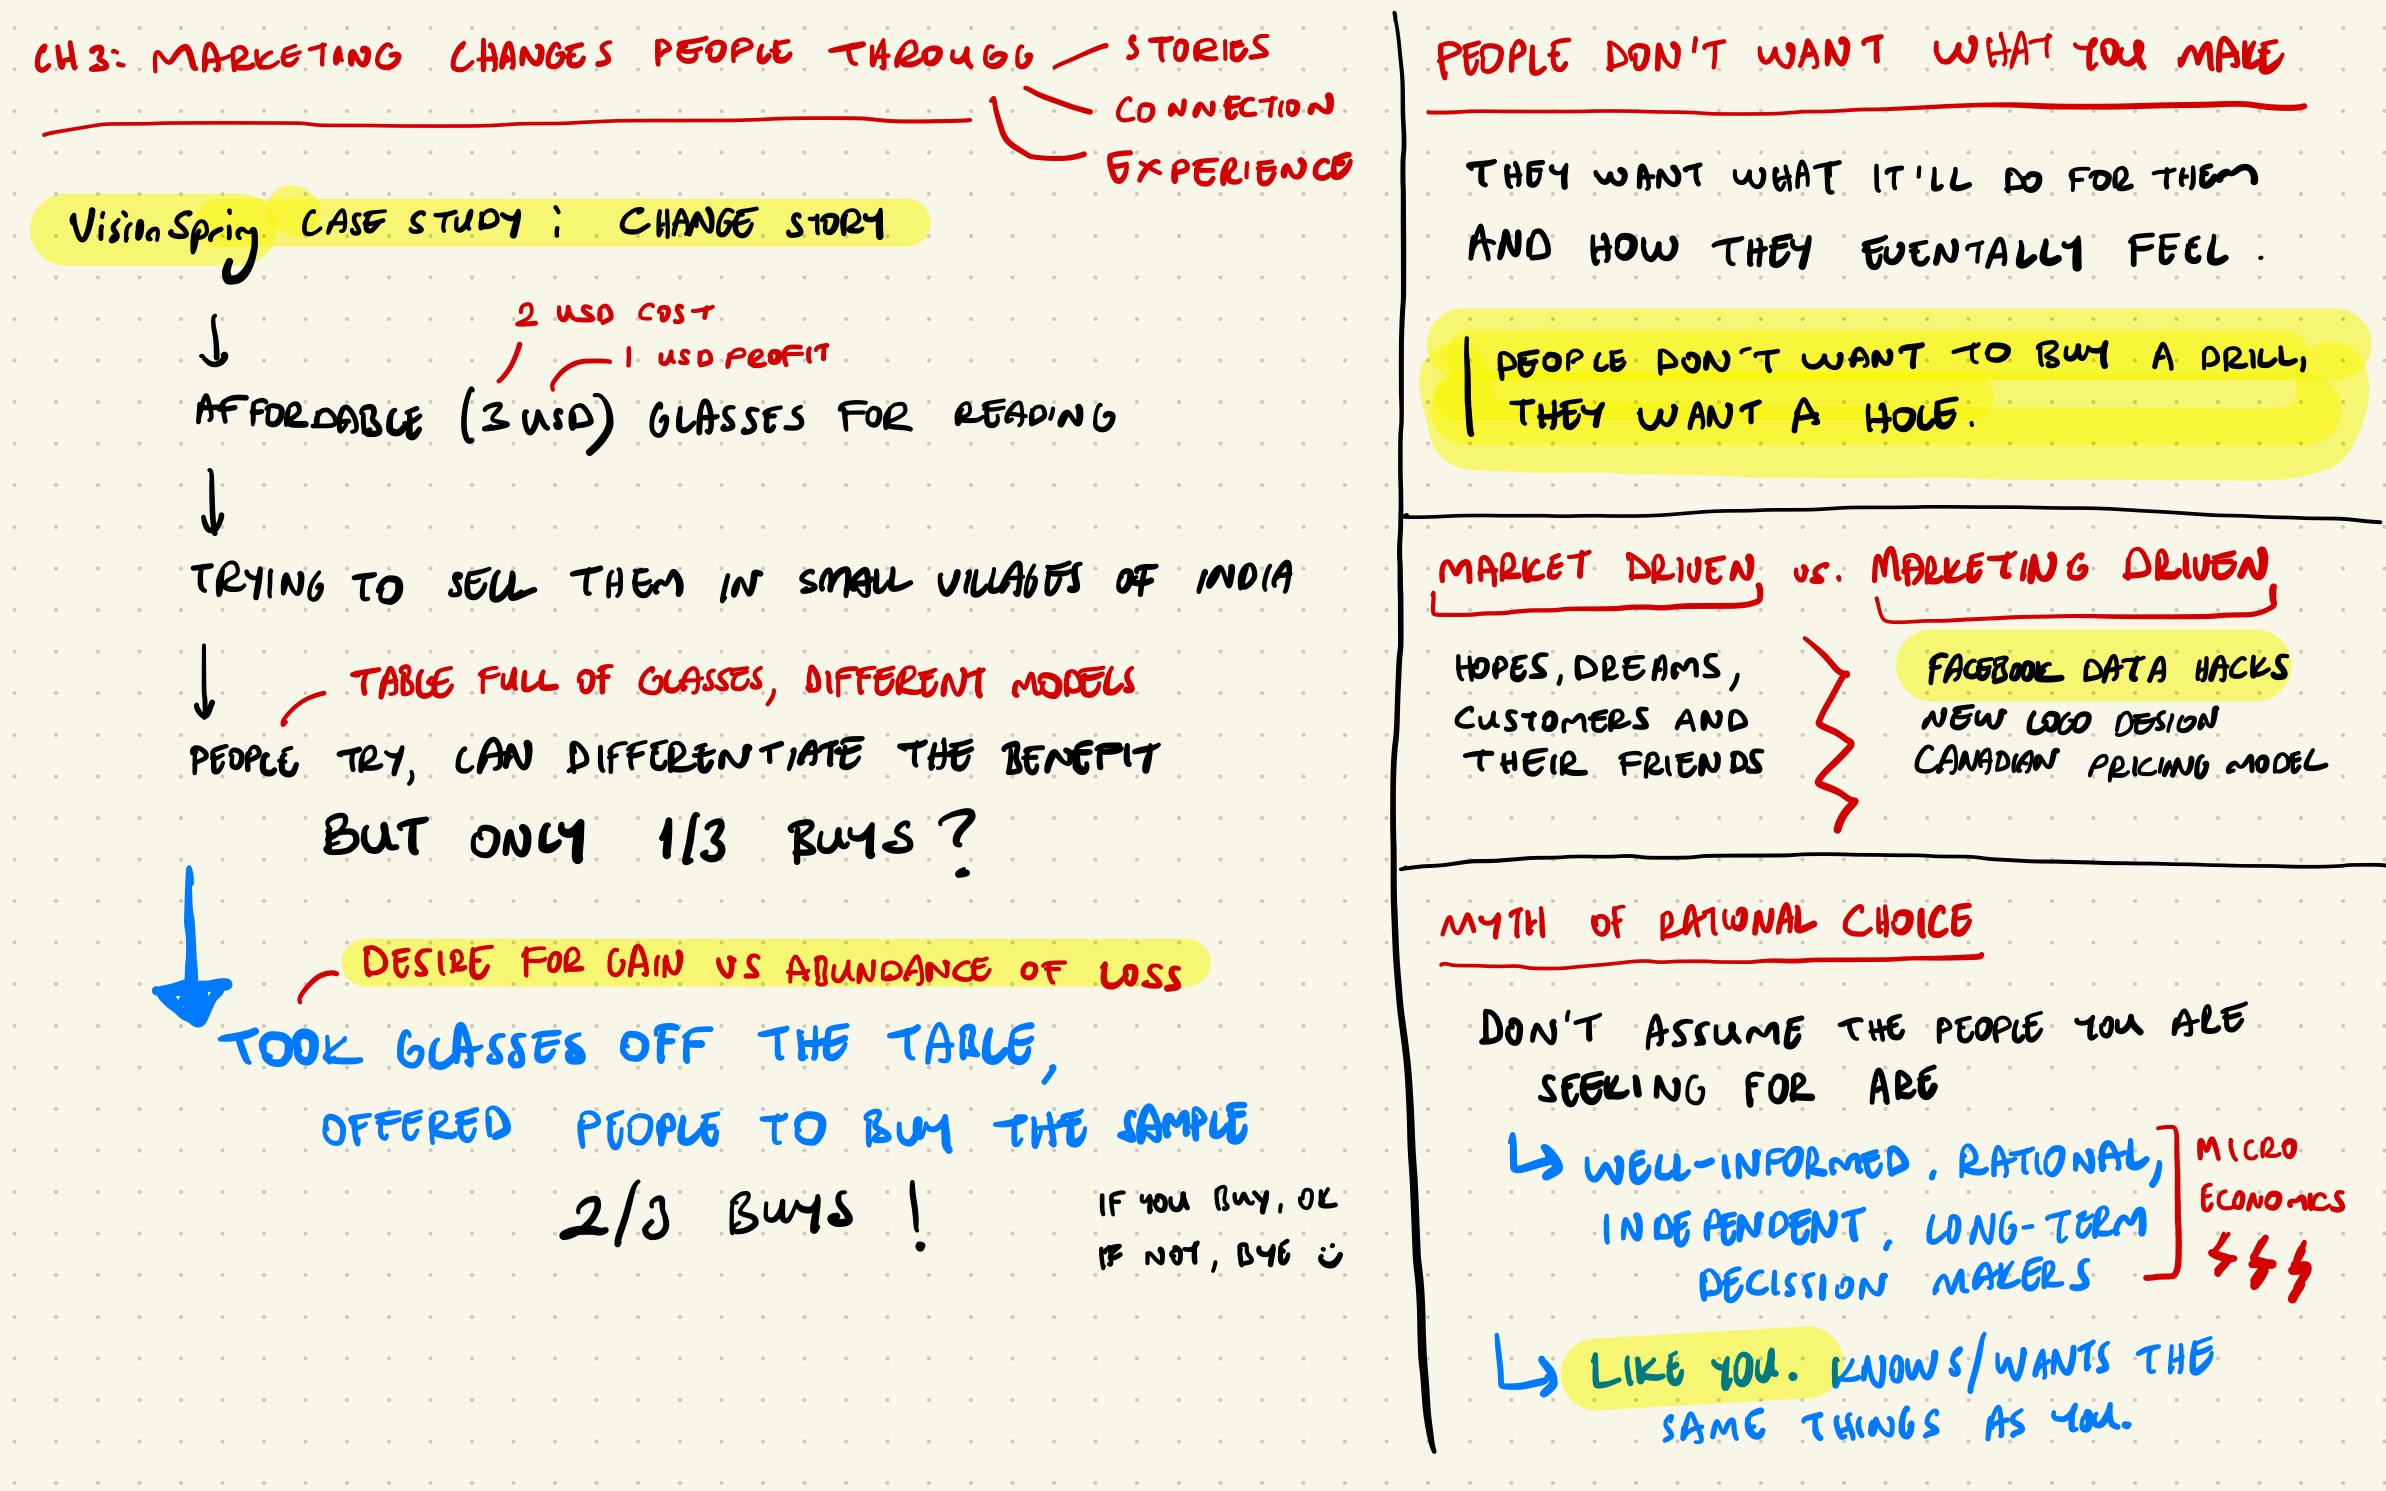 CH 3: MARKETING CHANGES PEOPLE THROUGG
STORIES
CONNECTION
EXPERIENCE
VisionSpring CASE STUDY : CHANGE STORY
2 USD COST
1 USD PROFIT
AFFORDABLE (3 USD) GLASSES FOR READING
TRYING TO SELL THEM IN SMALL VILLAGES OF INDIA
TABLE FULL OF GLASSES, DIFFERENT MODELS
PEOPLE TRY, CAN DIFFERENTIATE THE BENEFIT
BUT ONLY 1/3 BUYS ?
DESIRE FOR GAIN VS ABUNDANCE OF LOSS
TOOK GLASSES OFF THE TABLE,
OFFERED PEOPLE TO BUY THE SAMPLE
2/3 BUYS !
IF YOU BUY, OK
IF NOT, BYE :)
PEOPLE DON'T WANT WHAT YOU MAKE
THEY WANT WHAT IT'LL DO FOR THEM
AND HOW THEY EVENTALLY FEEL .
PEOPLE DON'T WANT TO BUY A DRILL,
THEY WANT A HOLE.
MARKET DRIVEN vs. MARKETING DRIVEN
HOPES, DREAMS,
CUSTOMERS AND
THEIR FRIENDS
FACEBOOK DATA HACKS
NEW LOGO DESIGN
CANADIAN PRICING MODEL
MYTH OF RATIONAL CHOICE
DON'T ASSUME THE PEOPLE YOU ARE
SEEKING FOR ARE
WELL-INFORMED, RATIONAL,
INDEPENDENT, LONG-TERM
DECISSION MAKERS
MICRO
ECONOMICS
LIKE YOU. KNOWS/WANTS THE
SAME THINGS AS YOU.